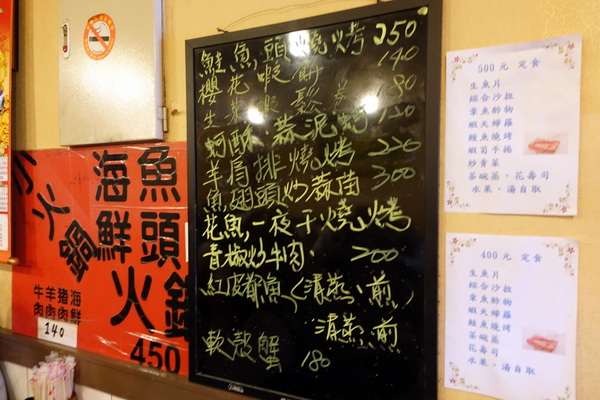 鮭魚頭燒烤 250
櫻花蝦 140
生菜蝦鬆 180
蚵 酥 蒜泥蚵 120
羊肩排燒烤 220
魚翅頭炒蒜苗 300
花魚,一夜干燒烤
青椒炒牛肉. 200
紅皮都魚(清蒸、煎)
清蒸、煎
軟殼蟹 180
小火鍋
牛肉
羊肉
豬肉
海鮮
140
海鮮
魚頭
火鍋
450
500元 定食
生魚片
綜合沙拉
拿魚酢物
蝦天婦羅
鰻魚燒烤
蝦筍手捲
炒青菜
茶碗蒸、花壽司
水果、湯自取
400元 定食
生魚片
綜合沙拉
拿魚酢物
蝦天婦羅
鮭魚燒烤
茶碗蒸
花壽司
水果、湯自取